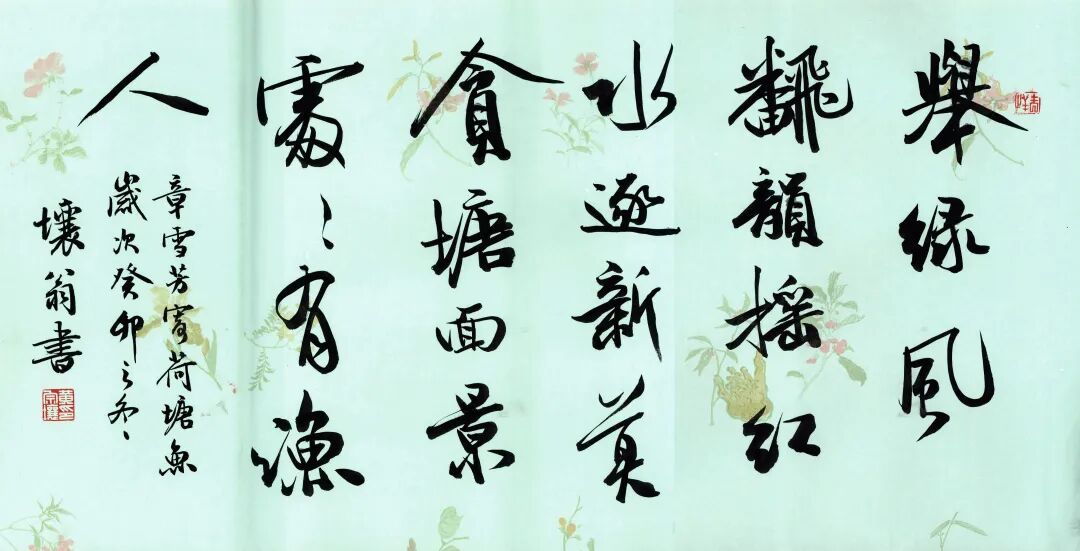 舉緑風
飜韻摇紅
水逐新莫
貪塘面景
處〻有漁
人
章雪芳寄荷塘魚
歲次癸卯之冬
壤翁書